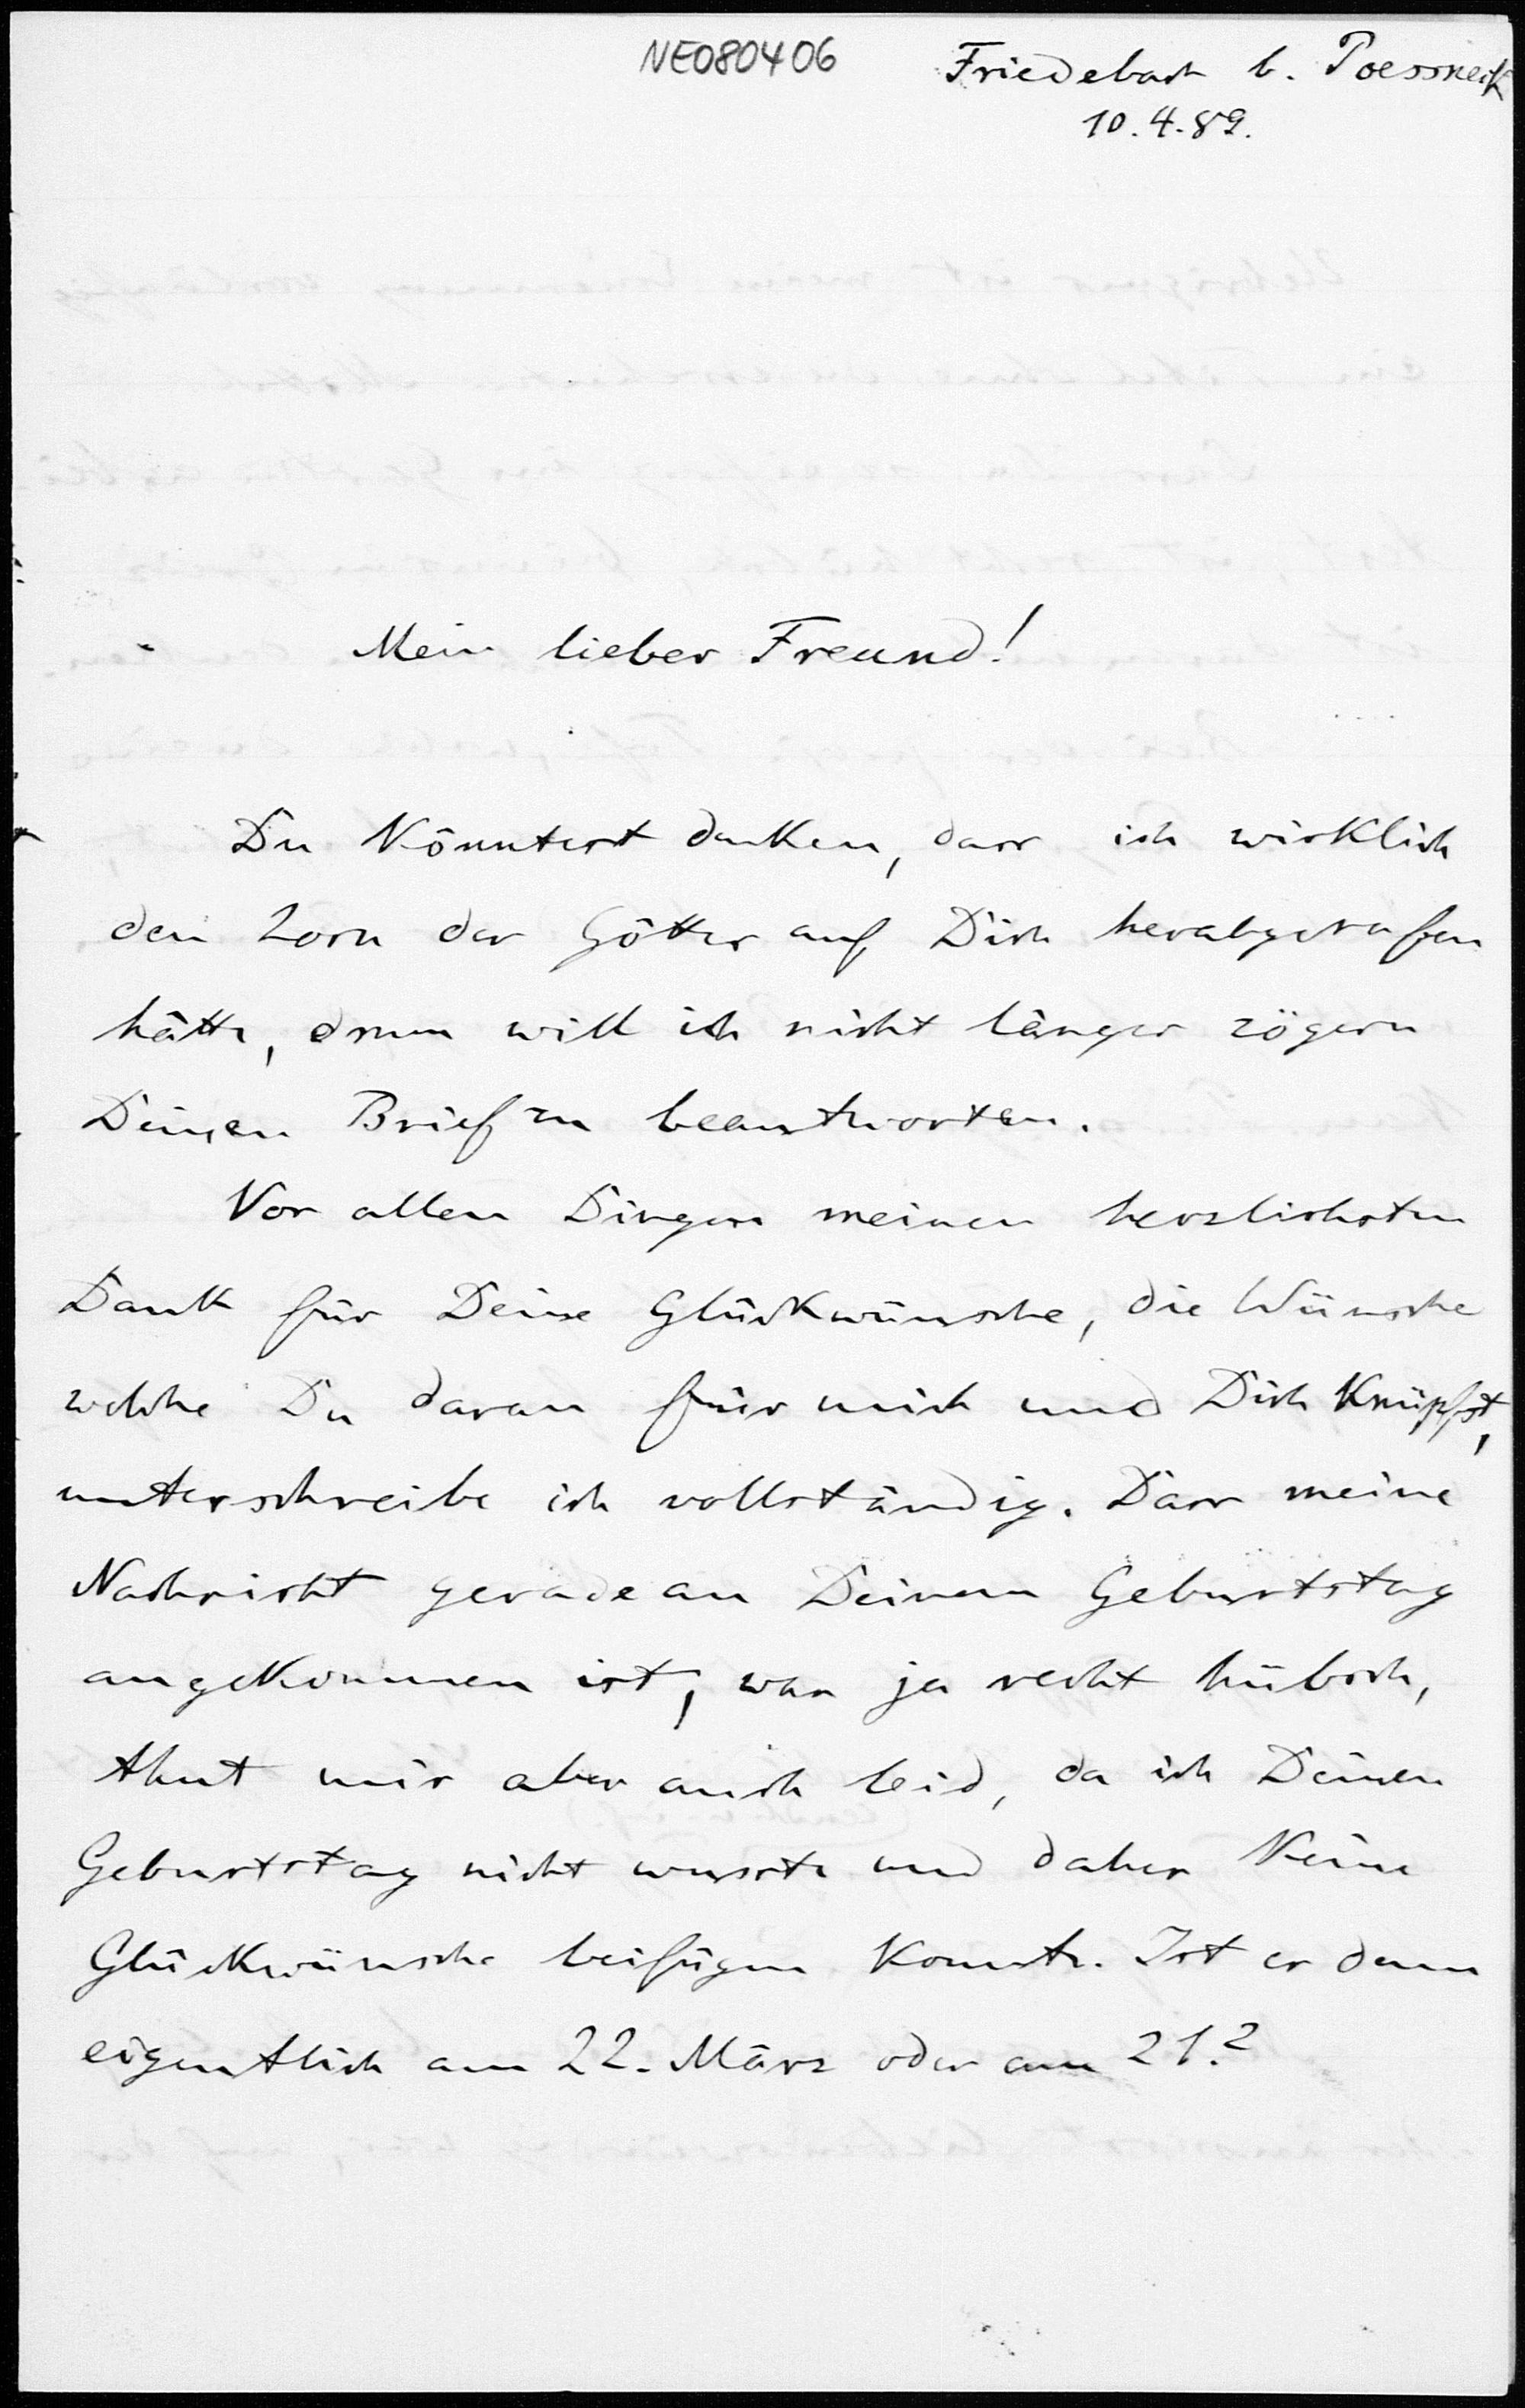 NE080406
Friedebach b. Poessneck
10.4.89.
Mein lieber Freund!
Du könntest denken, dass ich wirklich
den Zorn der Götter auf Dich herabgerufen
hätte, drum will ich nicht länger zögern
Deinen Brief zu beantworten.
Vor allen Dingen meinen herzlichsten
Dank für Deine Glückwünsche, die Wünsche
welche Du daran für mich und Dich knüpfst,
unterschreibe ich vollständig. Dass meine
Nachricht gerade an Deinem Geburtstag
angekommen ist, war ja recht hübsch,
thut mir aber auch leid, da ich Deinen
Geburtstag nicht wusste und daher keine
Glückwünsche beifügen konnte. Ist er denn
eigentlich am 22. März oder am 21.?